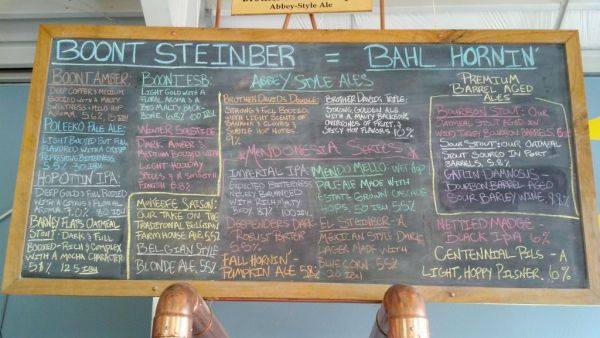 Abbey-Style Ale
BOONT STEINBER = BAHL HORNIN'
BOONT AMBER:
DEEP COPPER & MEDIUM
BODIED WITH A MALTY
SWEETNESS & MILD HOP
AROMA 5.8% 15 IBU
POLEEKO PALE ALE:
LIGHT BODIED BUT FULL
FLAVORED WITH A CRISP
REFRESHING BITTERNESS
HOP OTTIN IPA
DEEP GOLD & FULL BODIED
WITH A CITRUS & FLORAL
AROMA 7.0% 80 IBU
BARNEY FLATS OATMEAL
STOUT - DARK & FULL
BODIED - RICH & COMPLEX
WITH A MOCHA CHARACTER
5.8% 12.5 IBU
BOONT ESB:
LIGHT GOLD WITH A
FLORAL AROMA & A
BIG MALTY BACK-
BONE 6.8%
WINTER SOLSTICE
DARK AMBER &
MEDIUM BODIED WITH
LIGHT HOLIDAY
SPICES & A SMOOTH
FINISH 6.8%
MCFEEDE SAISON:
OUR TAKE ON THE
TRADITIONAL BELGIAN
FARM HOUSE ALE 5.5%
BELGIAN STYLE
BLONDE ALE, 5%
ABBEY STYLE ALES
BROTHER DAVID'S DOUBLE:
STRONG & FULL BODIED
WITH LIGHT SCENTS OF
BANANAS & CLOVES &
SUBTLE HOP NOTES
9%
BROTHER DAVID'S TRIPLE:
STRONG GOLDEN ALE
WITH A MALTY BACKBONE
OVERTONES OF FRUIT &
SPICEY HOP FLAVORS 10%
*MENDONESIA SERIES*
IMPERIAL IPA:
EXPECTED BITTERNESS
REALLY BALANCED
WITH RICH MALTY
BODY 8.7% 100 IBU
DESPENDERS DARK
ROBUST PORTER
5.8%
FALL HORNIN'-
PUMPKIN ALE 5.8%
MENDO MELLO: WET HOP
PALE ALE MADE WITH
ESTATE GROWN CASCADE
HOPS
EL STEINBER - A
MEXICAN STYLE DARK
LAGER MADE WITH
BLUE CORN 5.5%
20 IBU
PREMIUM
BARREL AGED
ALES
BOURBON STOUT: OUR
OATMEAL STOUT AGED IN
WILD TURKEY BOURBON BARRELS
SOUR STOUT: OUR OATMEAL
STOUT SOURED IN PORT
BARRELS, 5.8%
BOURBON BARREL AGED
SOUR BARLEY WINE, 9.9%
NETTIED MADGE
BLACK IPA 6%
CENTENNIAL PILS - A
LIGHT, HOPPY PILSNER. 6%